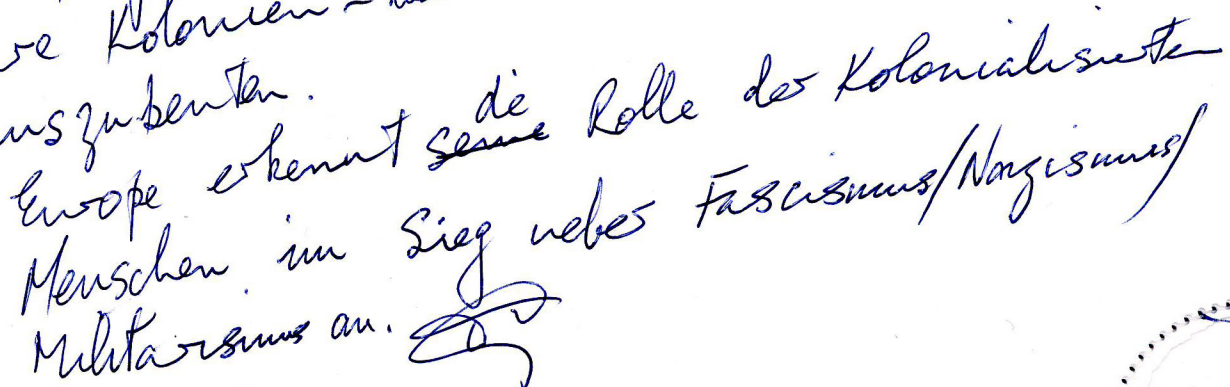 re Kolonien -
uszubeuten.
Europe erkennt seine die Rolle der Kolonialisierten
Menschen im Sieg ueber Fascismus/Nazgismus/
Militarismus an.